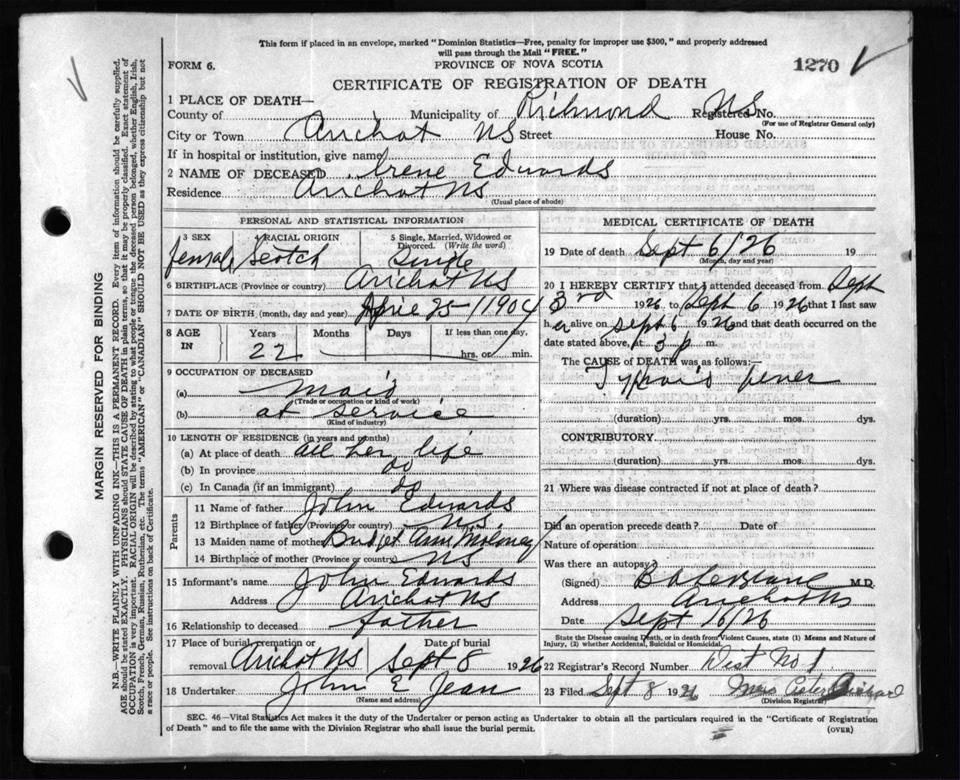 This form if placed in an envelope, marked "Dominion Statistics—Free, penalty for improper use $300," and properly addressed
will pass through the Mail "FREE."
FORM 6.
PROVINCE OF NOVA SCOTIA
1270
CERTIFICATE OF REGISTRATION OF DEATH
1 PLACE OF DEATH—
County of Municipality of Richmond NS Registered No.
(For use of Registrar General only)
City or Town Arichat NS Street House No.
If in hospital or institution, give name
2 NAME OF DECEASED Irene Edwards
Residence Arichat NS
(Usual place of abode)
PERSONAL AND STATISTICAL INFORMATION
3 SEX 4 RACIAL ORIGIN 5 Single, Married, Widowed or Divorced. (Write the word)
female Scotch Single
6 BIRTHPLACE (Province or country) Arichat NS
7 DATE OF BIRTH (month, day and year) April 25 - 1904
8 AGE IN Years Months Days If less than one day,
22 hrs. or min.
9 OCCUPATION OF DECEASED
(a) maid
(Trade or occupation or kind of work)
(b) at service
(Kind of industry)
10 LENGTH OF RESIDENCE (in years and months)
(a) At place of death all her life
(b) In province do
(c) In Canada (if an immigrant) do
Parents
11 Name of father John Edwards
12 Birthplace of father (Province or country) N.S.
13 Maiden name of mother Bridget Ann Moloney
14 Birthplace of mother (Province or country) NS
15 Informant's name John Edwards
Address Arichat NS
16 Relationship to deceased father
17 Place of burial, cremation or removal Arichat NS Date of burial Sept 8 1926
18 Undertaker John E Jean
(Name and address)
MEDICAL CERTIFICATE OF DEATH
19 Date of death Sept 6/26 19
(Month, day and year)
20 I HEREBY CERTIFY that I attended deceased from Sept
3rd 1926 to Sept 6 1926 that I last saw
her alive on Sept 6 1926 and that death occurred on
date stated above, at 3 p m.
The CAUSE of DEATH was as follows:
Typhoid fever
(duration) yrs. mos. dys.
CONTRIBUTORY.
(duration) yrs. mos. dys.
21 Where was disease contracted if not at place of death?
Did an operation precede death? Date of
Nature of operation
Was there an autopsy?
(Signed) M.D.
Address Arichat NS
Date Sept 16/26
State the Disease causing Death, or in death from Violent Causes, state (1) Means and Nature of
Injury, (2) whether Accidental, Suicidal or Homicidal.
22 Registrar's Record Number Dist No 1
23 Filed Sept 8 1926 Mrs Richard
(Division Registrar)
SEC. 46—Vital Statistics Act makes it the duty of the Undertaker or person acting as Undertaker to obtain all the particulars required in the "Certificate of Registration
of Death" and to file the same with the Division Registrar who shall issue the burial permit.
(OVER)
MARGIN RESERVED FOR BINDING
N.B. WRITE PLAINLY WITH UNFADING INK—THIS IS A PERMANENT RECORD. Every item of information should be carefully supplied.
AGE should be stated EXACTLY. PHYSICIANS should STATE CAUSE OF DEATH in plain terms, so that it may be properly classified. Exact statement of
OCCUPATION is very important. RACIAL ORIGIN will be described by stating to what people or tongue the deceased person belonged, whether English, Irish,
Scotch, French, German, Russian, Ruthenian, etc. The terms "AMERICAN" or "CANADIAN" SHOULD NOT BE USED as they express citizenship but not
a race or people. See instructions on back of Certificate.